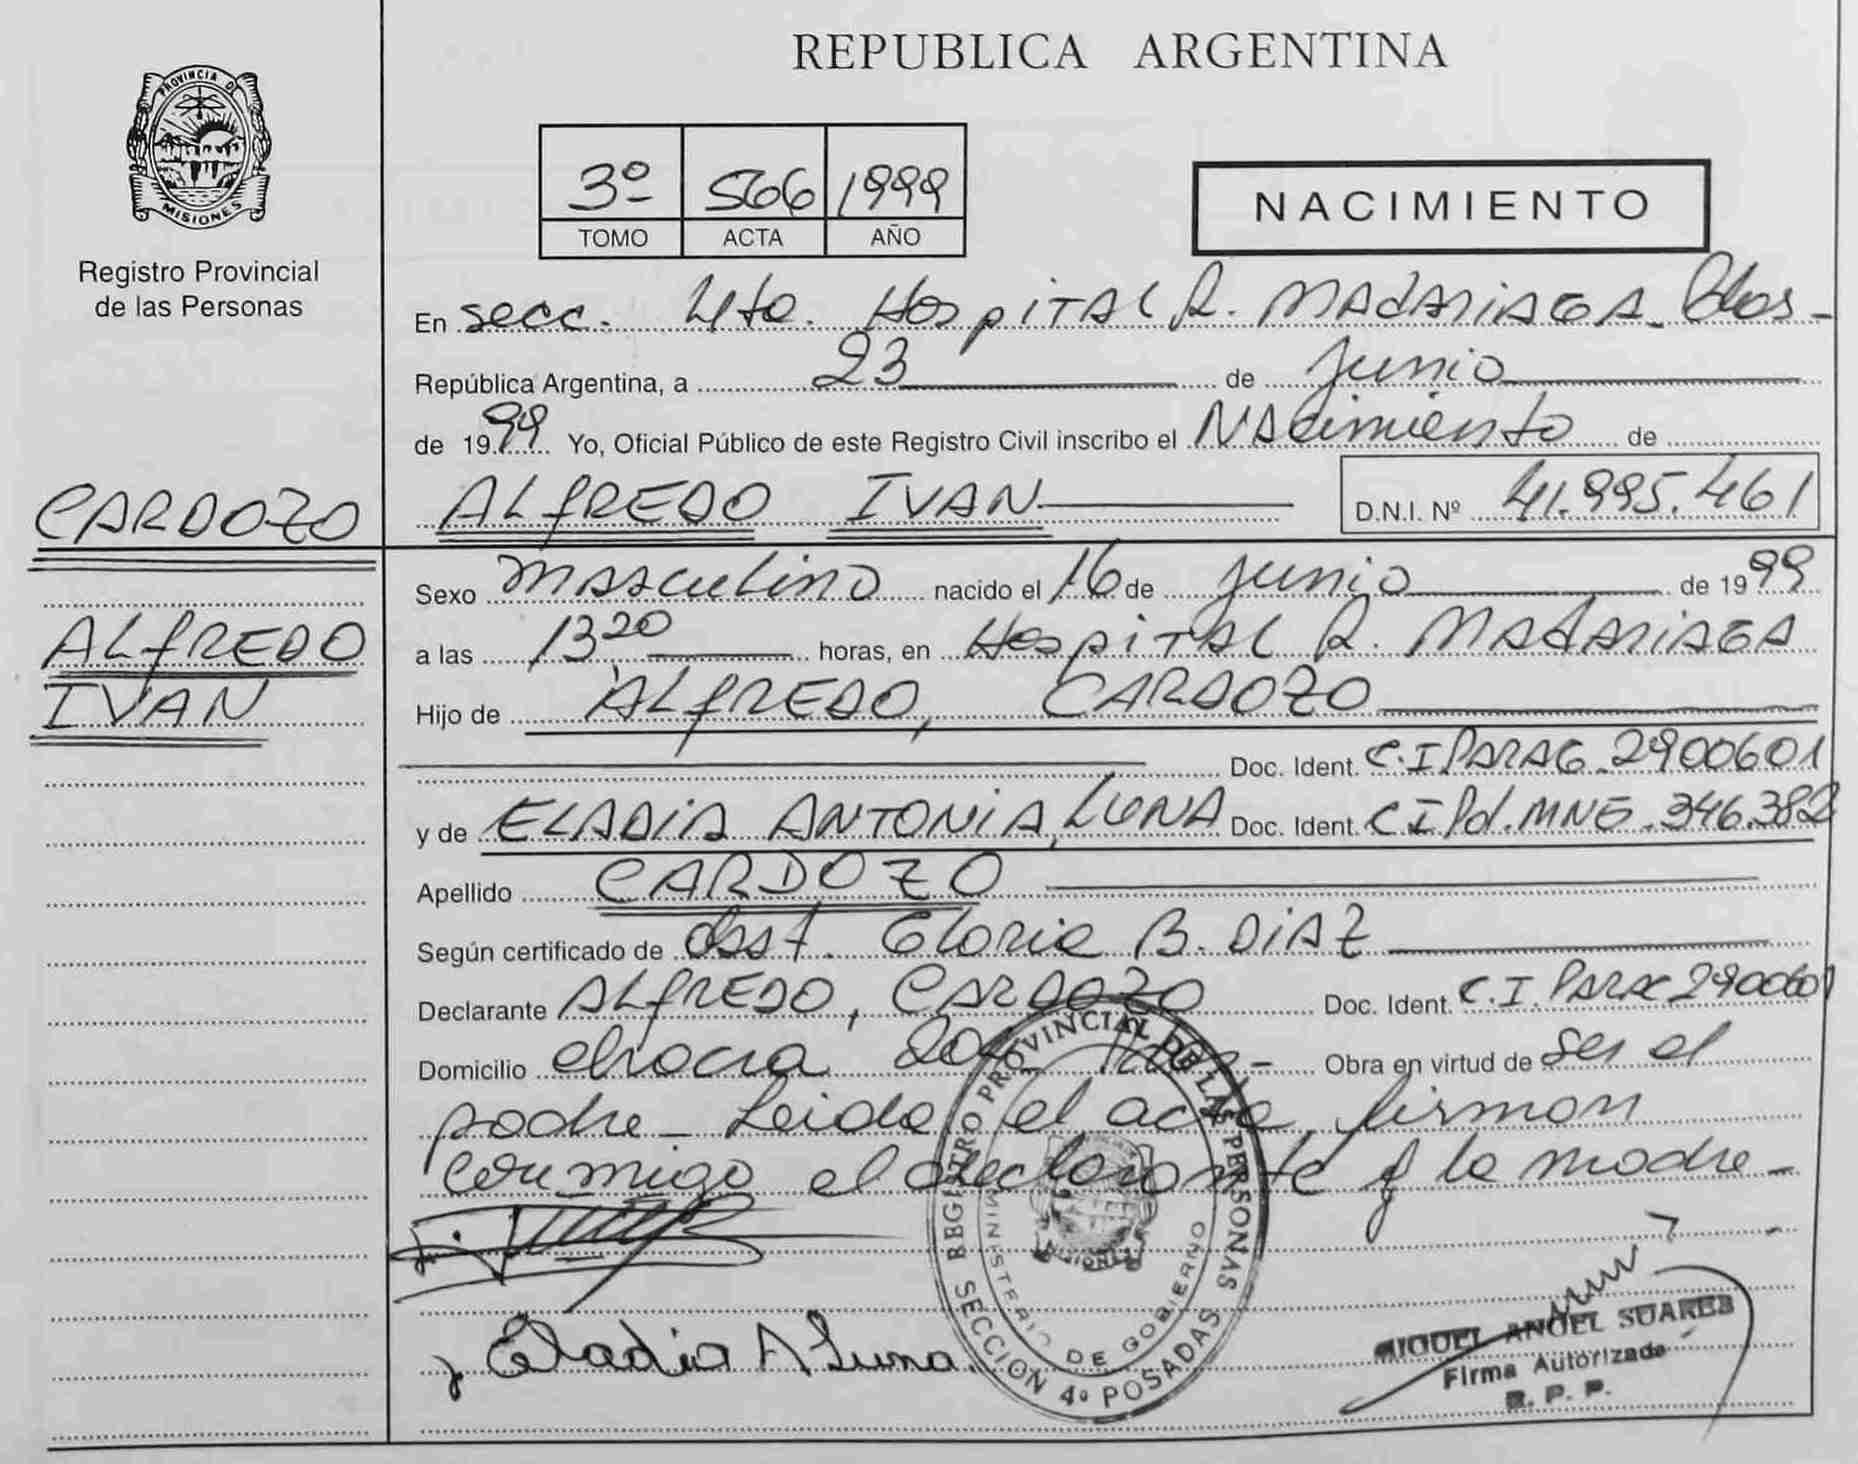 PROVINCIA DE
MISIONES
Registro Provincial
de las Personas
CARDOZO
ALFREDO
IVAN
REPUBLICA ARGENTINA
3º 566 1999
TOMO ACTA AÑO
NACIMIENTO
En secc. 4ta. Hospital R. MADARIAGA Pdas-
República Argentina, a 23 de junio
de 1999 Yo, Oficial Público de este Registro Civil inscribo el NAcimiento de
ALFREDO IVAN D.N.I. Nº 41.995.461
Sexo masculino nacido el 16 de junio de 1999
a las 13 20 horas, en Hospital R. MADARIAGA
Hijo de ALFREDO, CARDOZO
Doc. Ident. C.I PARAG. 2900601
y de ELADIA ANTONIA, LUNA Doc. Ident. C I Pol. MNES. 346.382
Apellido CARDOZO
Según certificado de obst. Gloria B. DIAZ
Declarante ALFREDO, CARDOZO Doc. Ident. C.I. PARAG 2900601
Domicilio chacra Obra en virtud de ser el
padre - Leida el acta, firman
conmigo el declarante y la madre -
REGISTRO PROVINCIAL DE LAS PERSONAS
MINISTERIO DE GOBIERNO
SECCION 4º POSADAS
MISIONES
Eladia A Luna.
MIGUEL ANGEL SUAREZ
Firma Autorizada
R. P. P.